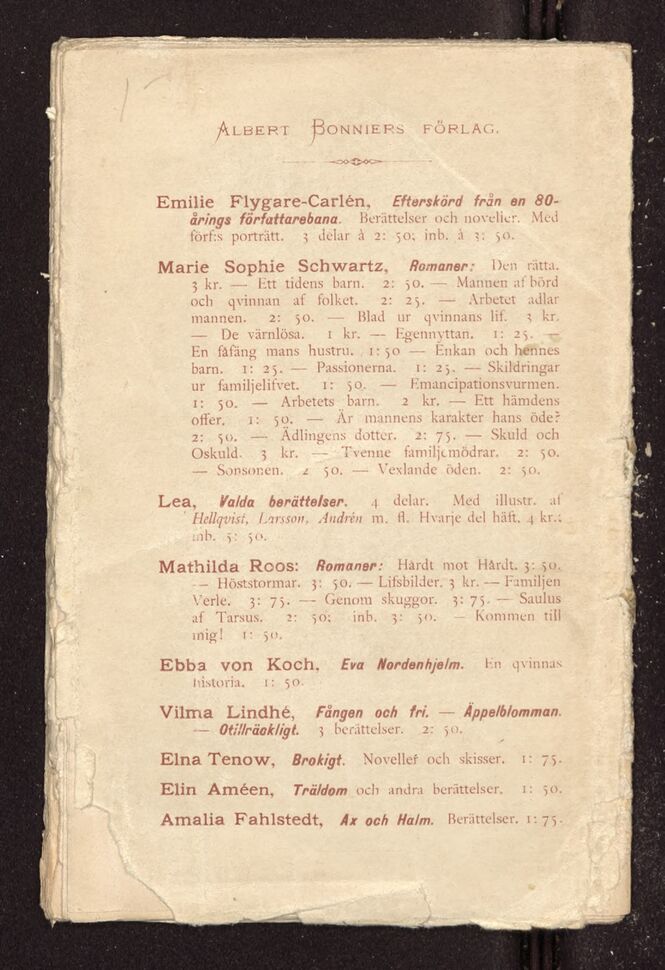 ALBERT BONNIERS FÖRLAG.
Emilie Flygare-Carlén, Efterskörd från en 80-
årings författarebana. Berättelser och noveller. Med
förf:s porträtt. 3 delar à 2: 50; inb. à 3: 50.
Marie Sophie Schwartz, Romaner: Den rätta.
3 kr. — Ett tidens barn. 2: 50. — Mannen af börd
och qvinnan af folket. 2: 25. — Arbetet adlar
mannen. 2: 50. — Blad ur qvinnans lif. 3 kr.
— De värnlösa. 1 kr. — Egennyttan. 1: 25. —
En fåfäng mans hustru. 1: 50 — Enkan och hennes
barn. 1: 25. — Passionerna. 1: 25. — Skildringar
ur familjelifvet. 1: 50. — Emancipationsvurmen.
1: 50. — Arbetets barn. 2 kr. — Ett hämdens
offer. 1: 50. — Är mannens karakter hans öde?
2: 50. — Ädlingens dotter. 2: 75. — Skuld och
Oskuld. 3 kr. — Tvenne familjemödrar. 2: 50.
— Sonsonen. 2 50. — Vexlande öden. 2: 50.
Lea, Valda berättelser. 4 delar. Med illustr. af
Hellqvist, Larsson, Andrén m. fl. Hvarje del häft. 4 kr.;
inb. 5: 50.
Mathilda Roos: Romaner: Hårdt mot Hårdt. 3: 50.
— Höststormar. 3: 50. — Lifsbilder. 3 kr. — Familjen
Verle. 3: 75. — Genom skuggor. 3: 75. — Saulus
af Tarsus. 2: 50; inb. 3: 50. — Kommen till
mig! 1: 50.
Ebba von Koch, Eva Nordenhjelm. En qvinnas
historia. 1: 50.
Vilma Lindhé, Fången och fri. — Äppelblomman.
— Otillräckligt. 3 berättelser. 2: 50.
Elna Tenow, Brokigt. Noveller och skisser. 1: 75.
Elin Améen, Träldom och andra berättelser. 1: 50.
Amalia Fahlstedt, Ax och Halm. Berättelser. 1: 75.